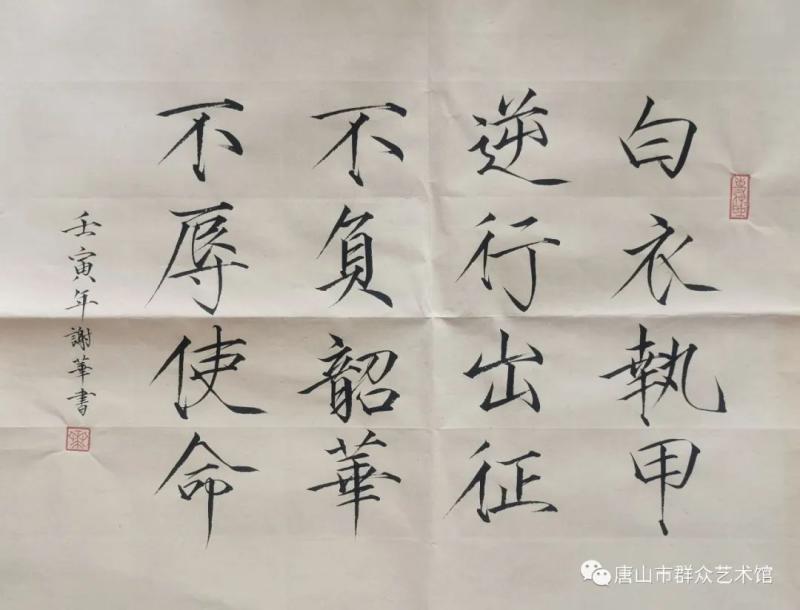 白衣執甲
逆行出征
不負韶華
不辱使命
壬寅年謝華書
唐山市群众艺术馆